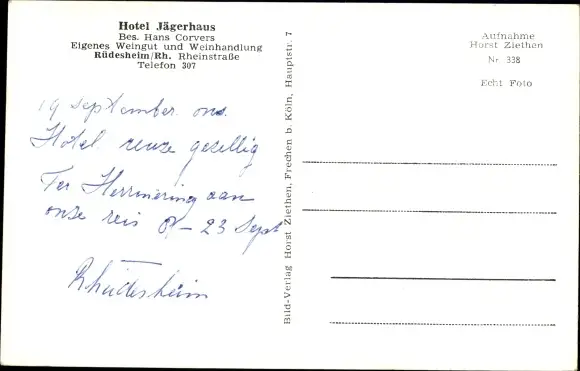 Hotel Jägerhaus
Bes. Hans Corvers
Eigenes Weingut und Weinhandlung
Rüdesheim/Rh. Rheinstraße
Telefon 307
19 September ons
Hotel reuze gezellig
Ter Herrinering aan
onze reis - 23 Sept
Rhüdesheim
Bild-Verlag Horst Ziethen, Frechen b. Köln, Hauptstr. 7
Aufnahme
Horst Ziethen
Nr. 338
Echt Foto